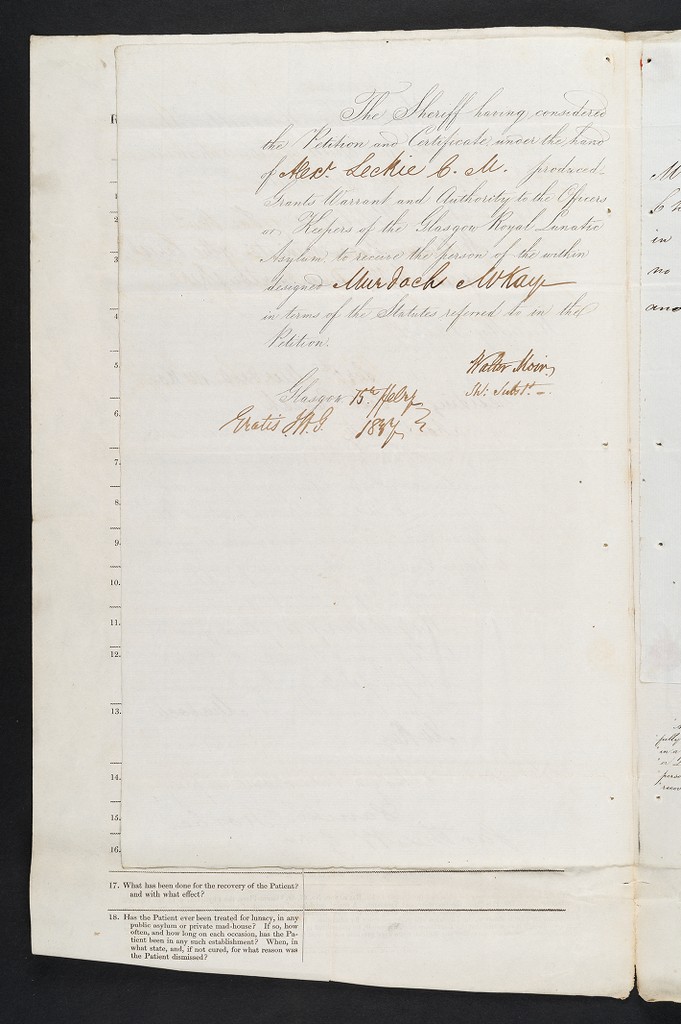 The Sheriff having considered
the Petition and Certificate under the hand
of Alexr. Leckie C. M. produced
Grants Warrant and Authority to the Officers
or Keepers of the Glasgow Royal Lunatic
Asylum to receive the person of the within
designed Murdoch McKay
in terms of the Statutes referred to in the
Petition.
Walter Moir
Sh: Subst.
Glasgow 15th Feby
Gratis
1.
2.
3.
4.
5.
6.
7.
8.
9.
10.
11.
12.
13.
14.
15.
16.
17. What has been done for the recovery of the Patient?
and with what effect?
18. Has the Patient ever been treated for lunacy, in any
public asylum or private mad-house? If so, how
often, and how long on each occasion, has the Pa-
tient been in any such establishment? When, in
what state, and, if not cured, for what reason was
the Patient dismissed?
in
no
and